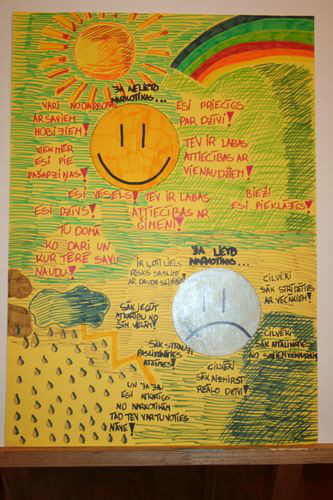 JA NELIETO
NARKOTIKAS...
VARI NODARBOTIES
AR SAVIEM
HOBIJIEM!
ESI PRIECĪGS
PAR DZĪVI!
VIENMĒR
ESI PIE
PAŠAPZIŅAS!
TEV IR LABAS
ATTIECĪBAS AR
VIENAUDŽIEM!
ESI VESELS!
ESI DZĪVS!
TEV IR LABAS
ATTIECĪBAS AR
ĢIMENI!
BIEŽI
ESI PIEKLĀJĪGS!
TU DOMĀ
KO DARI UN
KUR TĒRĒ SAVU
NAUDU!
JA LIETO
NARKOTIKAS...
IR ĻOTI LIELS
RISKS SASLIMT
AR DAUDZ SLIMĪBĀM!
CILVĒKI
SĀK STRĪDĒTIES
AR VECĀKIEM!
SĀK IEGŪT
ATKARĪBU NO
ŠĪM VIELĀM!
CILVĒKI
SĀK ATTĀLINĀTIES
NO SAVIEM VIENAUDŽIEM!
SĀK STRAUJI
PASLIKTINĀTIES
ATZĪMES!
CILVĒKI
SĀK AIZMIRST
REĀLO DZĪVI!
UN JA JAU
ESI ATKARĪGS
NO NARKOTIKĀM
TAD TEV VAR TUVOTIES
NĀVE!